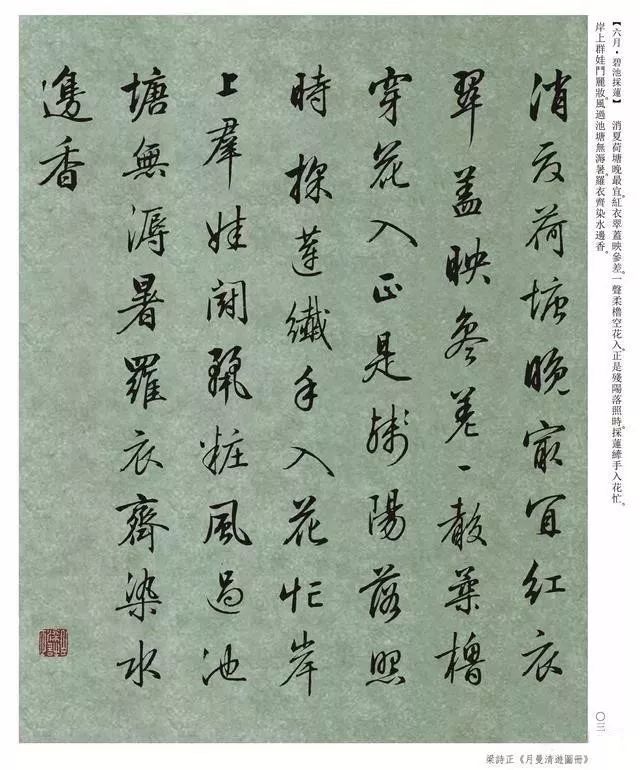 【六月·碧池採蓮】 消夏荷塘晚最宜。紅衣翠蓋映參差。一聲柔櫓空花入。正是殘陽落照時。採蓮縴手入花忙。
岸上群娃鬥麗妝。風過池塘無海暑。羅衣齊染水邊香。
消夏荷塘晚最宜紅衣
翠蓋映參差一聲柔櫓
穿花入正是殘陽落照
時採蓮纖手入花忙岸
上羣娃鬪麗粧風過池
塘無溽暑羅衣齊染水
邊香
〇三
梁詩正《月曼清遊圖冊》